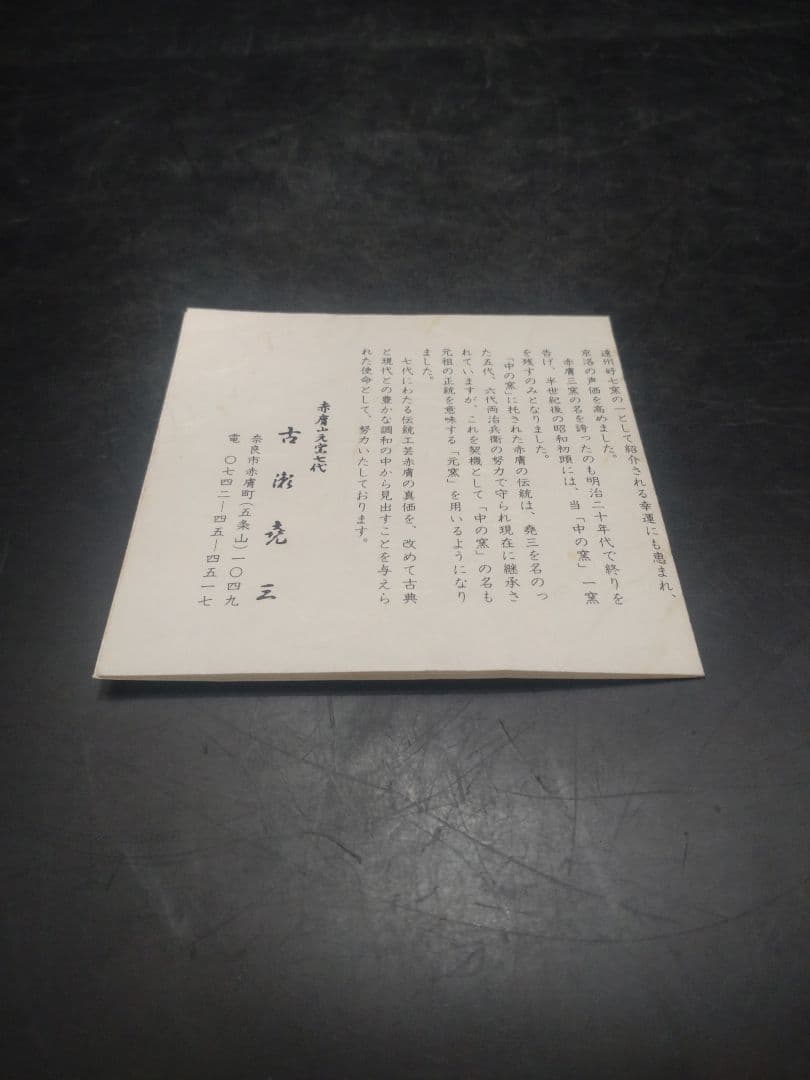 遠州好七窯の一として紹介される幸運にも恵まれ、
京洛の声価を高めました。
赤膚三窯の名を誇ったのも明治二十年代で終りを
告げ、半世紀後の昭和初頭には、当「中の窯」一窯
を残すのみとなりました。
「中の窯」に托された赤膚の伝統は、堯三を名のっ
た五代、六代両治兵衛の努力で守られ現在に継承さ
れていますが、これを契機として「中の窯」の名も
元祖の正統を意味する「元窯」を用いるようになり
ました。
七代にわたる伝統工芸赤膚の真価を、改めて古典
と現代との豊かな調和の中から見出すことを与えら
れた使命として、努力いたしております。
赤膚山元窯七代
古瀬堯三
奈良市赤膚町(五条山)一〇四九
電 〇七四二―四五―四五一七